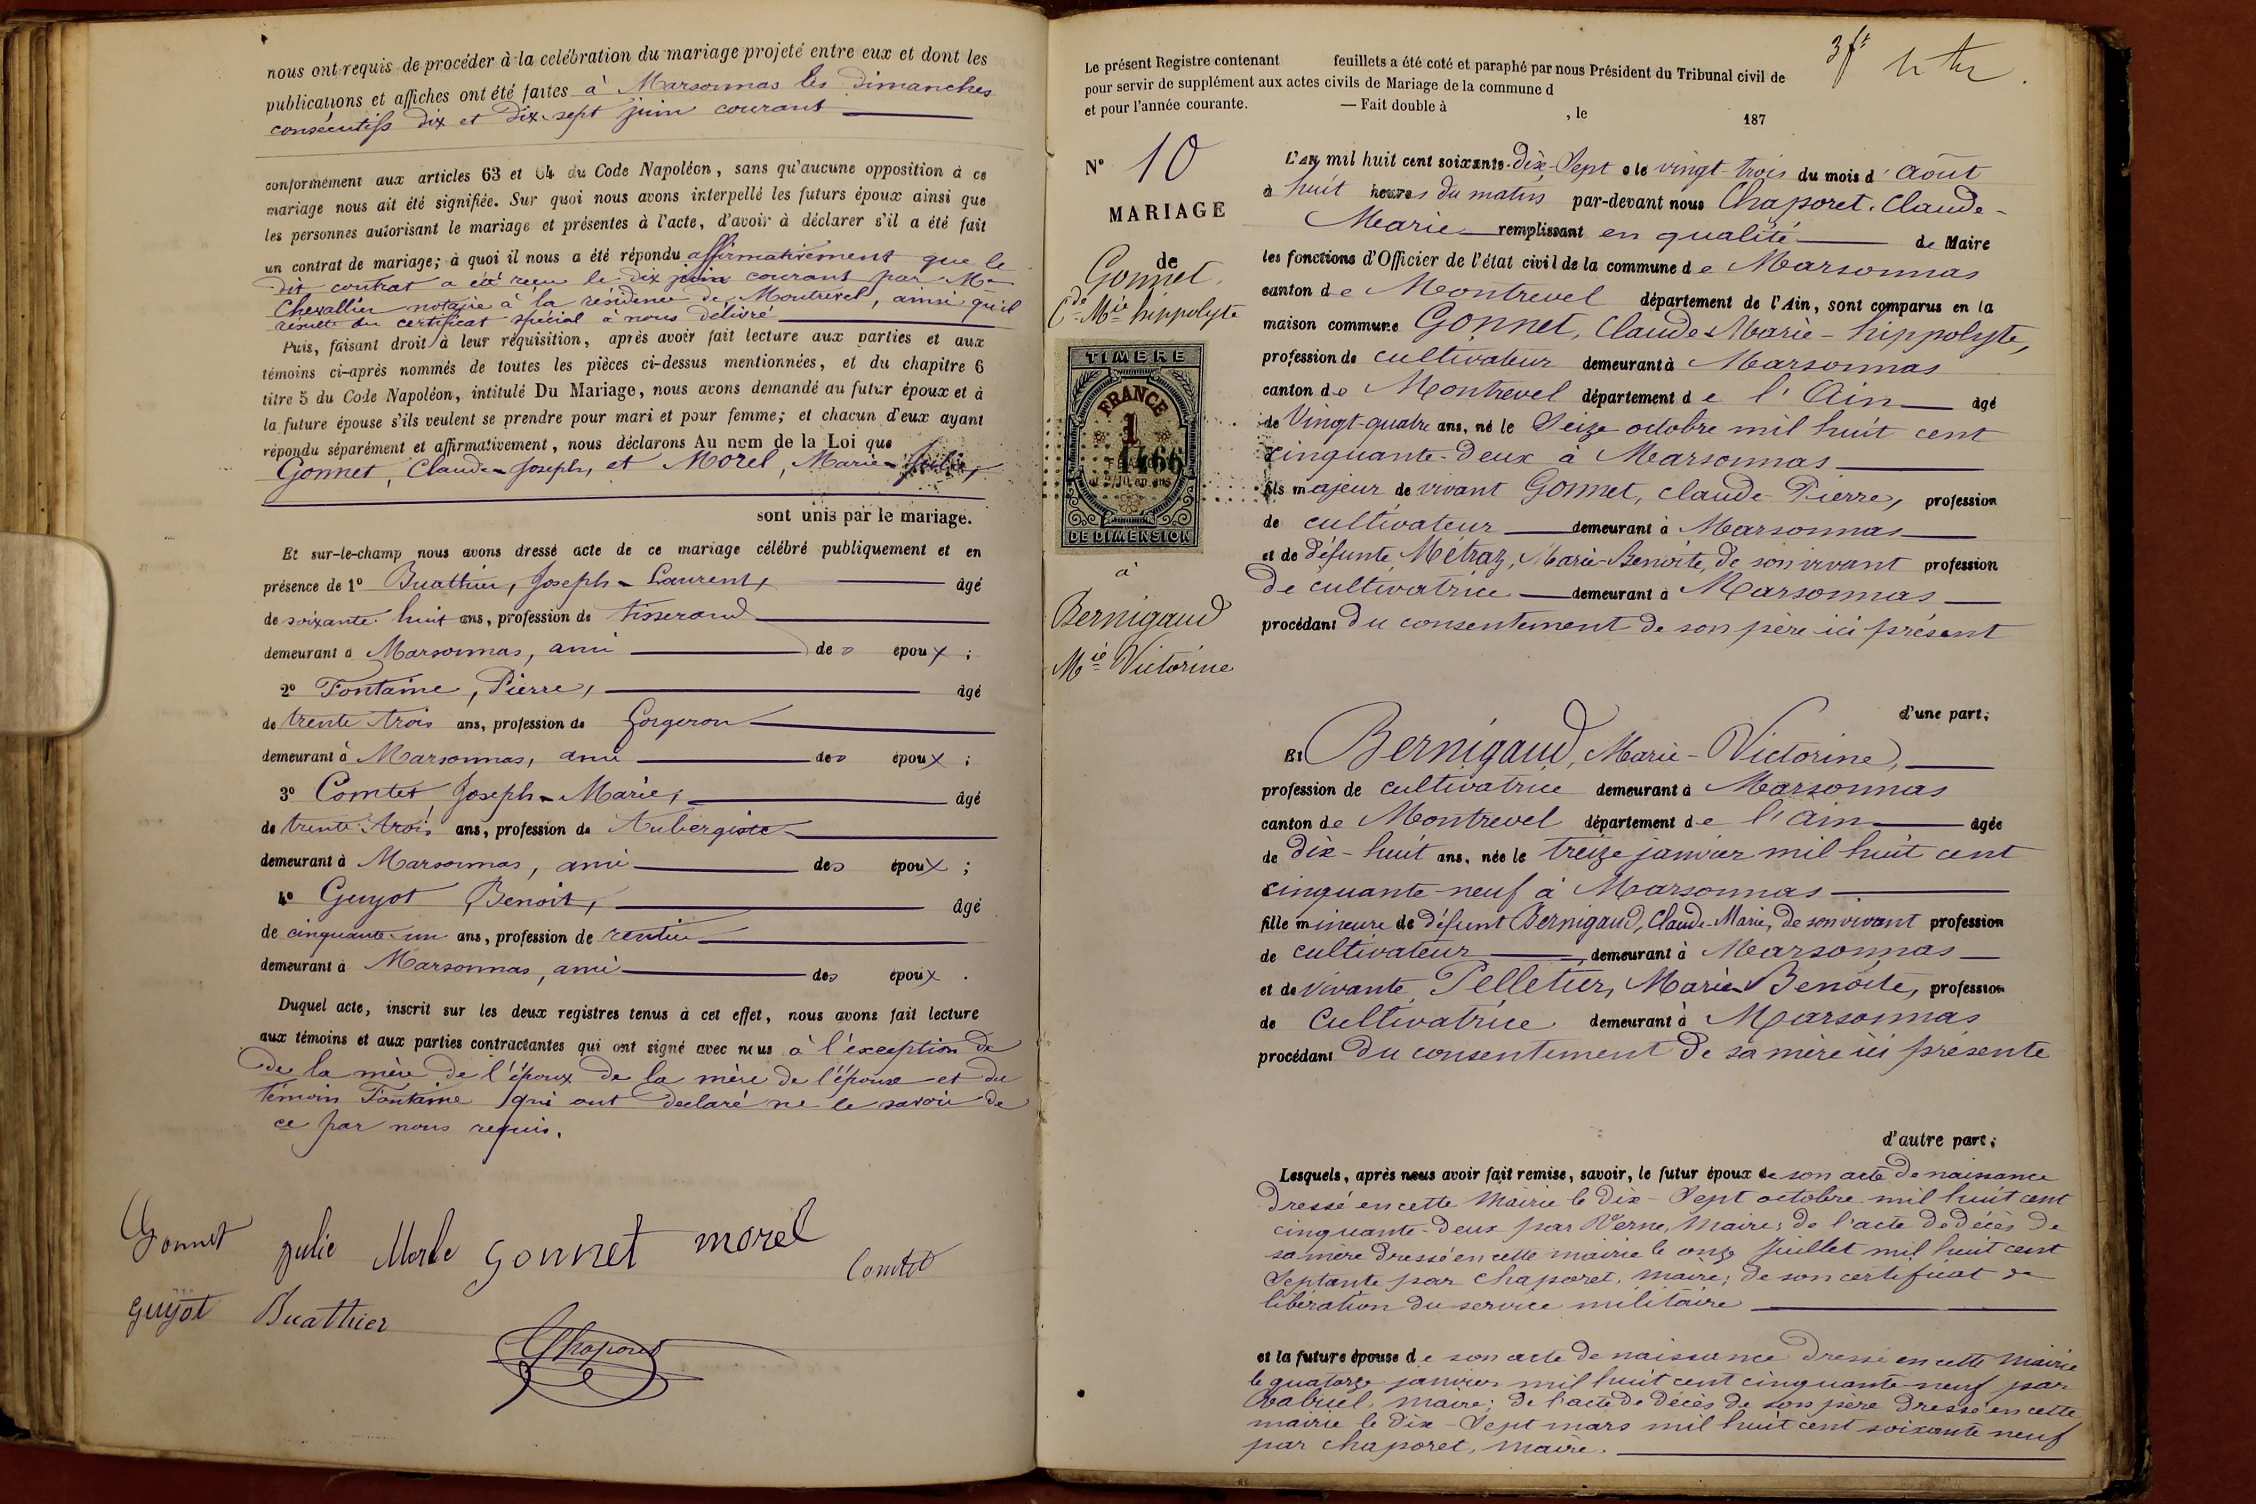 nous ont requis de procéder à la celébration du mariage projeté entre eux et dont les
publications et affiches ont été faites à Marsonnas les Dimanches
consécutifs dix et Dix-sept juin courant
conformément aux articles 63 et 64 du Code Napoléon, sans qu'aucune opposition à ce
mariage nous ait été signifiée. Sur quoi nous avons interpellé les futurs époux ainsi que
les personnes autorisant le mariage et présentes à l'acte, d'avoir à déclarer s'il a été fait
un contrat de mariage; à quoi il nous a été répondu affirmativement que le
dit contrat a été reçu le dix juin courant par Me
Chevallier notaire à la résidence de Montrevel, ainsi qu'il
résulte du certificat spécial à nous délivré
Puis, faisant droit à leur réquisition, après avoir fait lecture aux parties et aux
témoins ci-après nommés de toutes les pièces ci-dessus mentionnées, et du chapitre 6
titre 5 du Code Napoléon, intitulé Du Mariage, nous avons demandé au futur époux et à
la future épouse s'ils veulent se prendre pour mari et pour femme; et chacun d'eux ayant
répondu séparément et affirmativement, nous déclarons Au nom de la Loi que
Gonnet, Claude-Joseph, et Morel, Marie-Julie,
sont unis par le mariage.
Et sur-le-champ nous avons dressé acte de ce mariage célébré publiquement et en
présence de 1º Buathier, Joseph-Laurent, âgé
de soixante huit ans, profession de tisserand
demeurant à Marsonnas, ami des époux ;
2º Fontaine, Pierre, âgé
de trente trois ans, profession de forgeron
demeurant à Marsonnas, ami des époux ;
3º Comtet, Joseph-Marie, âgé
de trente trois ans, profession de Aubergiste
demeurant à Marsonnas, ami des époux ;
4º Guyot Benoit, âgé
de cinquante-un ans, profession de rentier
demeurant à Marsonnas, ami des époux .
Duquel acte, inscrit sur les deux registres tenus à cet effet, nous avons fait lecture
aux témoins et aux parties contractantes qui ont signé avec nous à l'exception de
de la mère de l'époux de la mère de l'épouse et du
témoin Fontaine qui ont declaré ne le savoir de
ce par nous requis.
Gonnet julie Morel gonnet morel Comtet
guyot Buathier
Chaporet
Le présent Registre contenant feuillets a été coté et paraphé par nous Président du Tribunal civil de
pour servir de supplément aux actes civils de Mariage de la commune d
et pour l'année courante. — Fait double à , le 187
Nº 10
MARIAGE
de
Gonnet
Cde Mie hippolyte
TIMBRE
FRANCE
1
1466
DE DIMENSION
à
Bernigaud
Mie Victorine
L'an mil huit cent soixante-Dix-Sept le vingt-trois du mois d'Août
à huit heures du matin par-devant nous Chaporet, Claude-
Marie remplissant en qualité de Maire
les fonctions d'Officier de l'état civil de la commune de Marsonnas
canton de Montrevel département de l'Ain, sont comparus en la
maison commune Gonnet, Claude-Marie-hippolyte,
profession de cultivateur demeurant à Marsonnas
canton de Montrevel département de l'Ain âgé
de Vingt-quatre ans, né le Seize octobre mil huit cent
cinquante-deux à Marsonnas
fils majeur de vivant Gonnet, claude-Pierre, profession
de cultivateur demeurant à Marsonnas
et de défunte Métraz, Marie-Benoîte, de son vivant profession
de cultivatrice demeurant à Marsonnas
procédant du consentement de son père ici présent
d'une part;
Et Bernigaud, Marie-Victorine,
profession de cultivatrice demeurant à Marsonnas
canton de Montrevel département de l'Ain âgée
de dix-huit ans, née le treize janvier mil huit cent
cinquante-neuf à Marsonnas
fille mineure de défunt Bernigaud, Claude-Marie, de son vivant profession
de cultivateur demeurant à Marsonnas
et de vivante Pelletier, Marie-Benoîte, profession
de Cultivatrice demeurant à Marsonnas
procédant du consentement de sa mère ici présente
d'autre part;
Lesquels, après nous avoir fait remise, savoir, le futur époux de son acte de naissance
dressé en cette Mairie le Dix-Sept octobre mil huit cent
cinquante-deux par Verne, Maire; de l'acte de décès de
sa mère dressé en cette mairie le onze Juillet mil huit cent
Septante par Chaporet, maire; de son certificat de
libération du service militaire
et la future épouse de son acte de naissance dressé en cette Mairie
le quatorze janvier mil huit cent cinquante neuf par
maire; de l'acte de décès de son père dressé en cette
mairie le dix-Sept mars mil huit cent soixante neuf
par chaporet, maire.